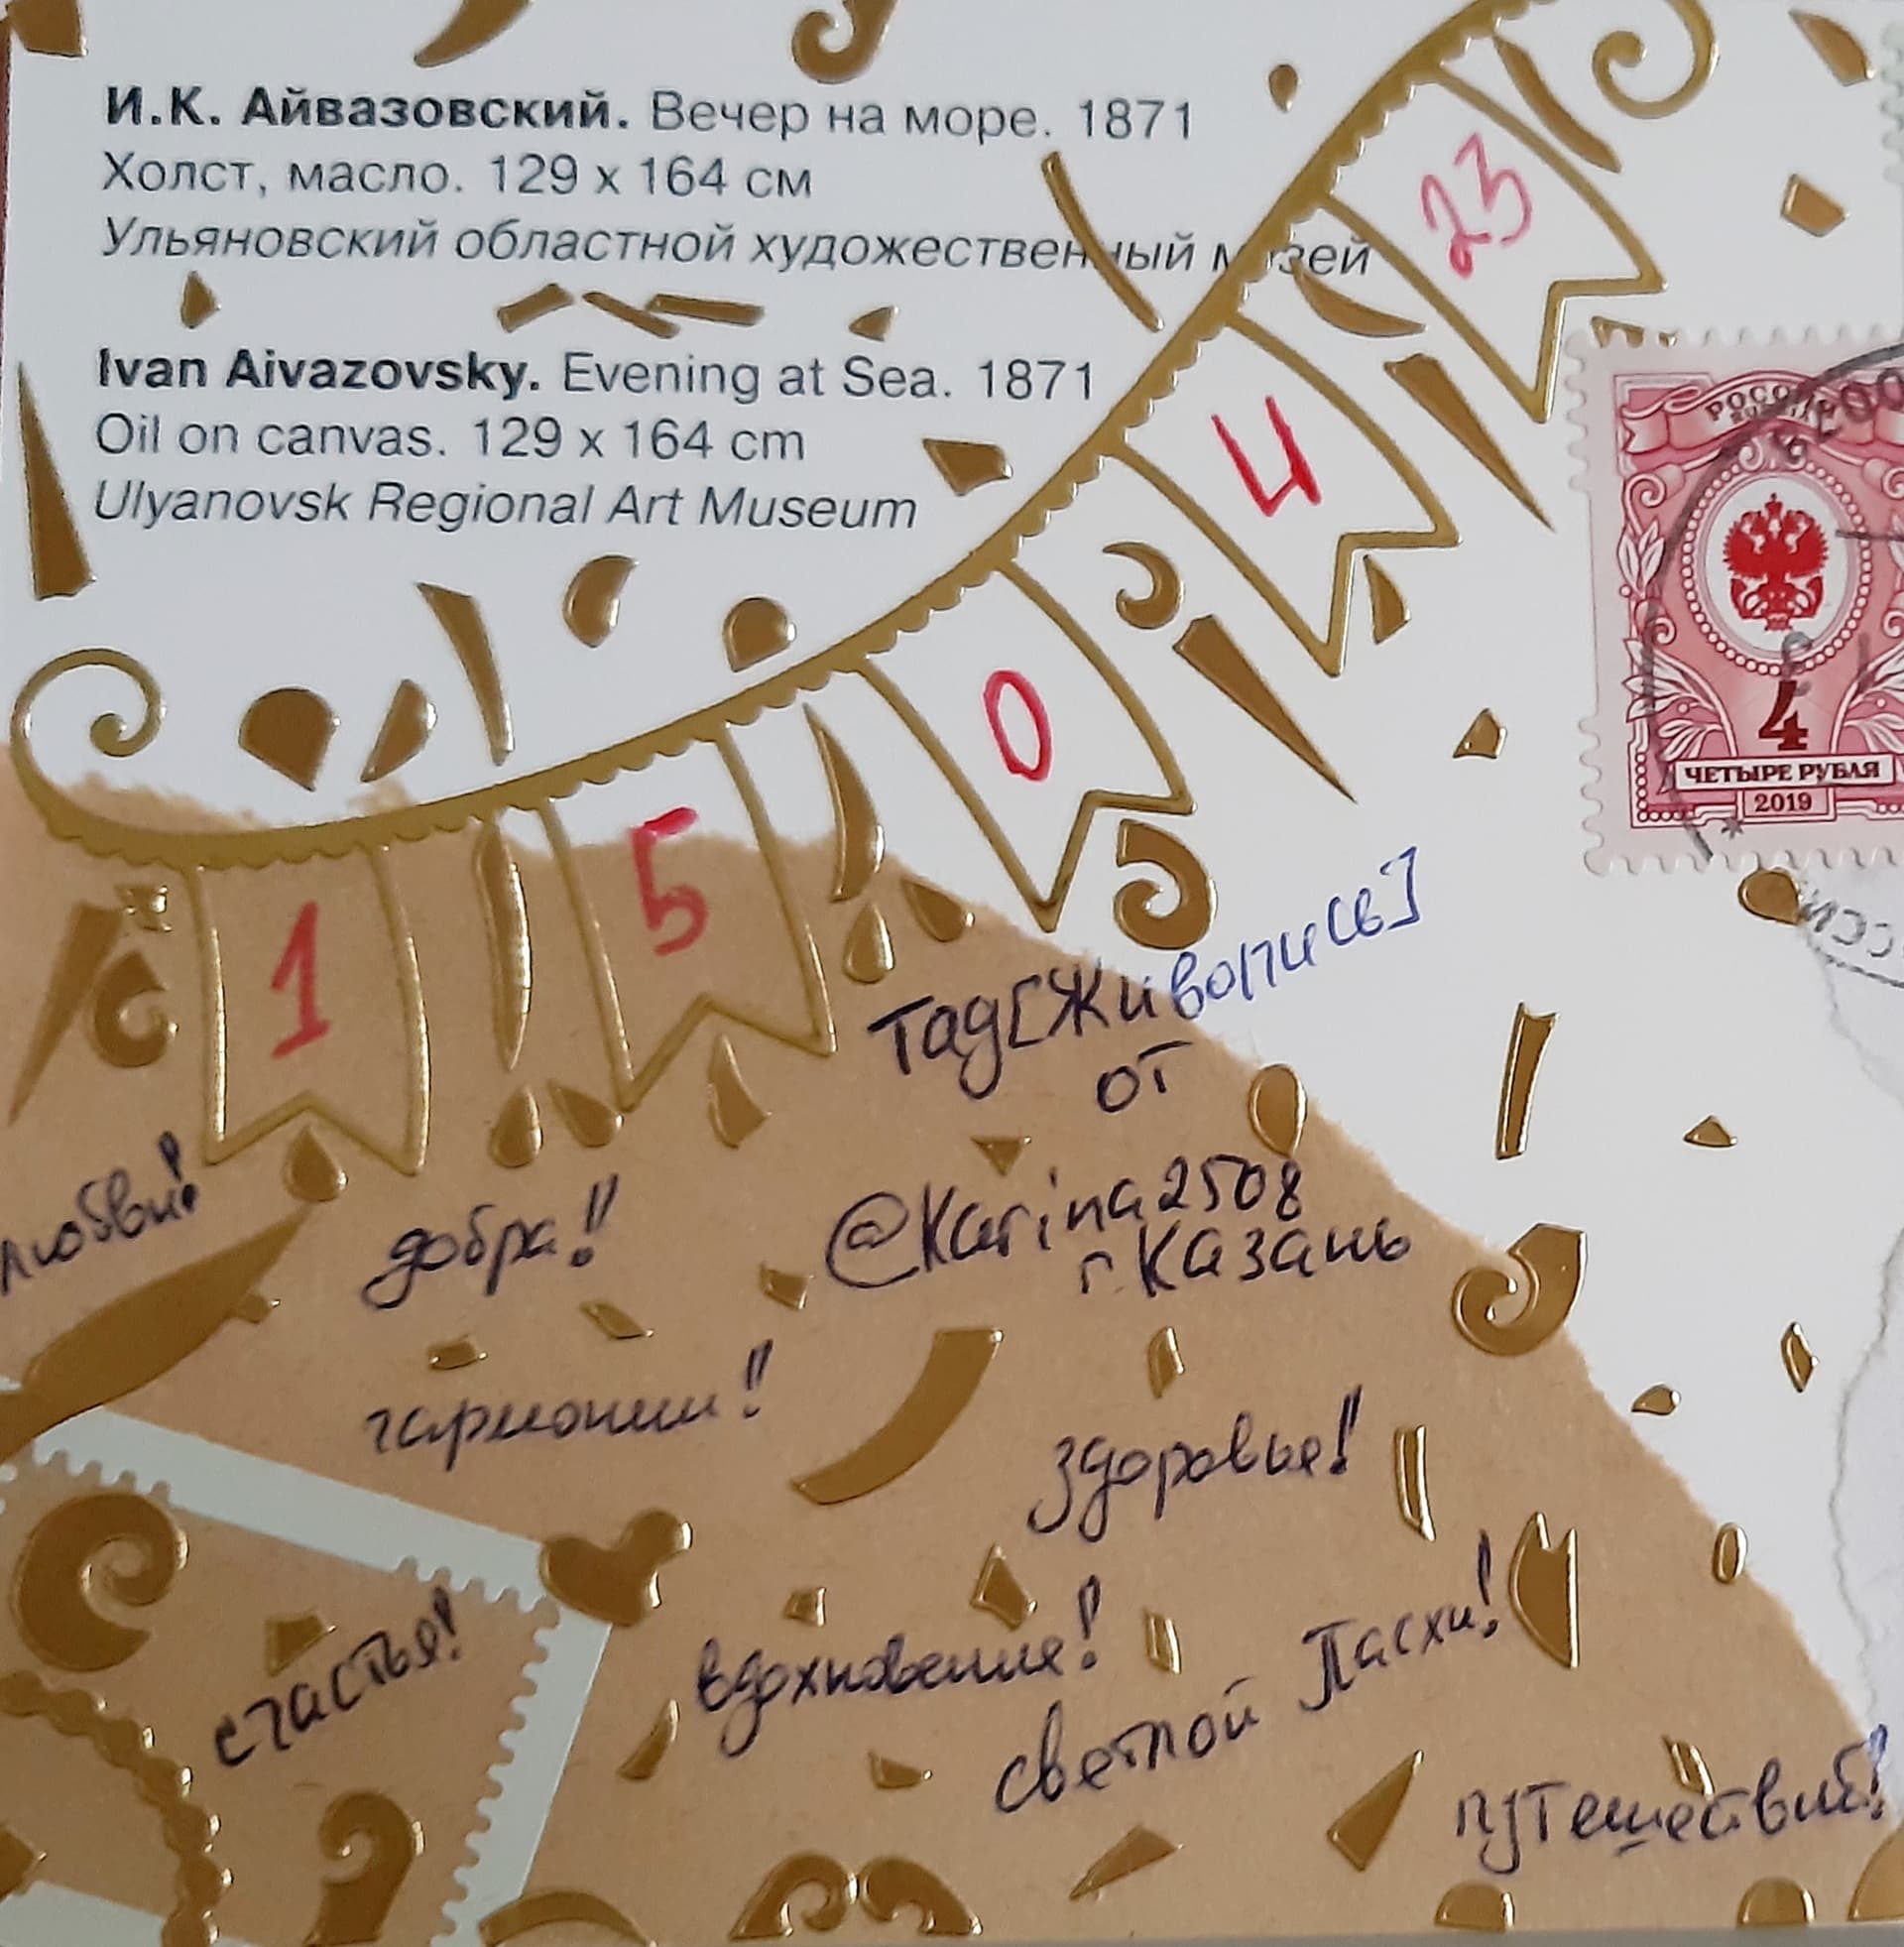 И.К. Айвазовский. Вечер на море. 1871
Холст, масло. 129 x 164 см
Ульяновский областной художественный музей
Ivan Aivazovsky. Evening at Sea. 1871
Oil on canvas. 129 x 164 cm
Ulyanovsk Regional Art Museum
1 5 0 4 23
РОССИЯ
RUSSIA
4
ЧЕТЫРЕ РУБЛЯ
2019
Тад[Живопись]
от
@Karina2508
г. Казань
любви!
добра!!
гармонии!!
здоровье!
счастья!
вдохновение!
светлой Пасхи!
путешествий!